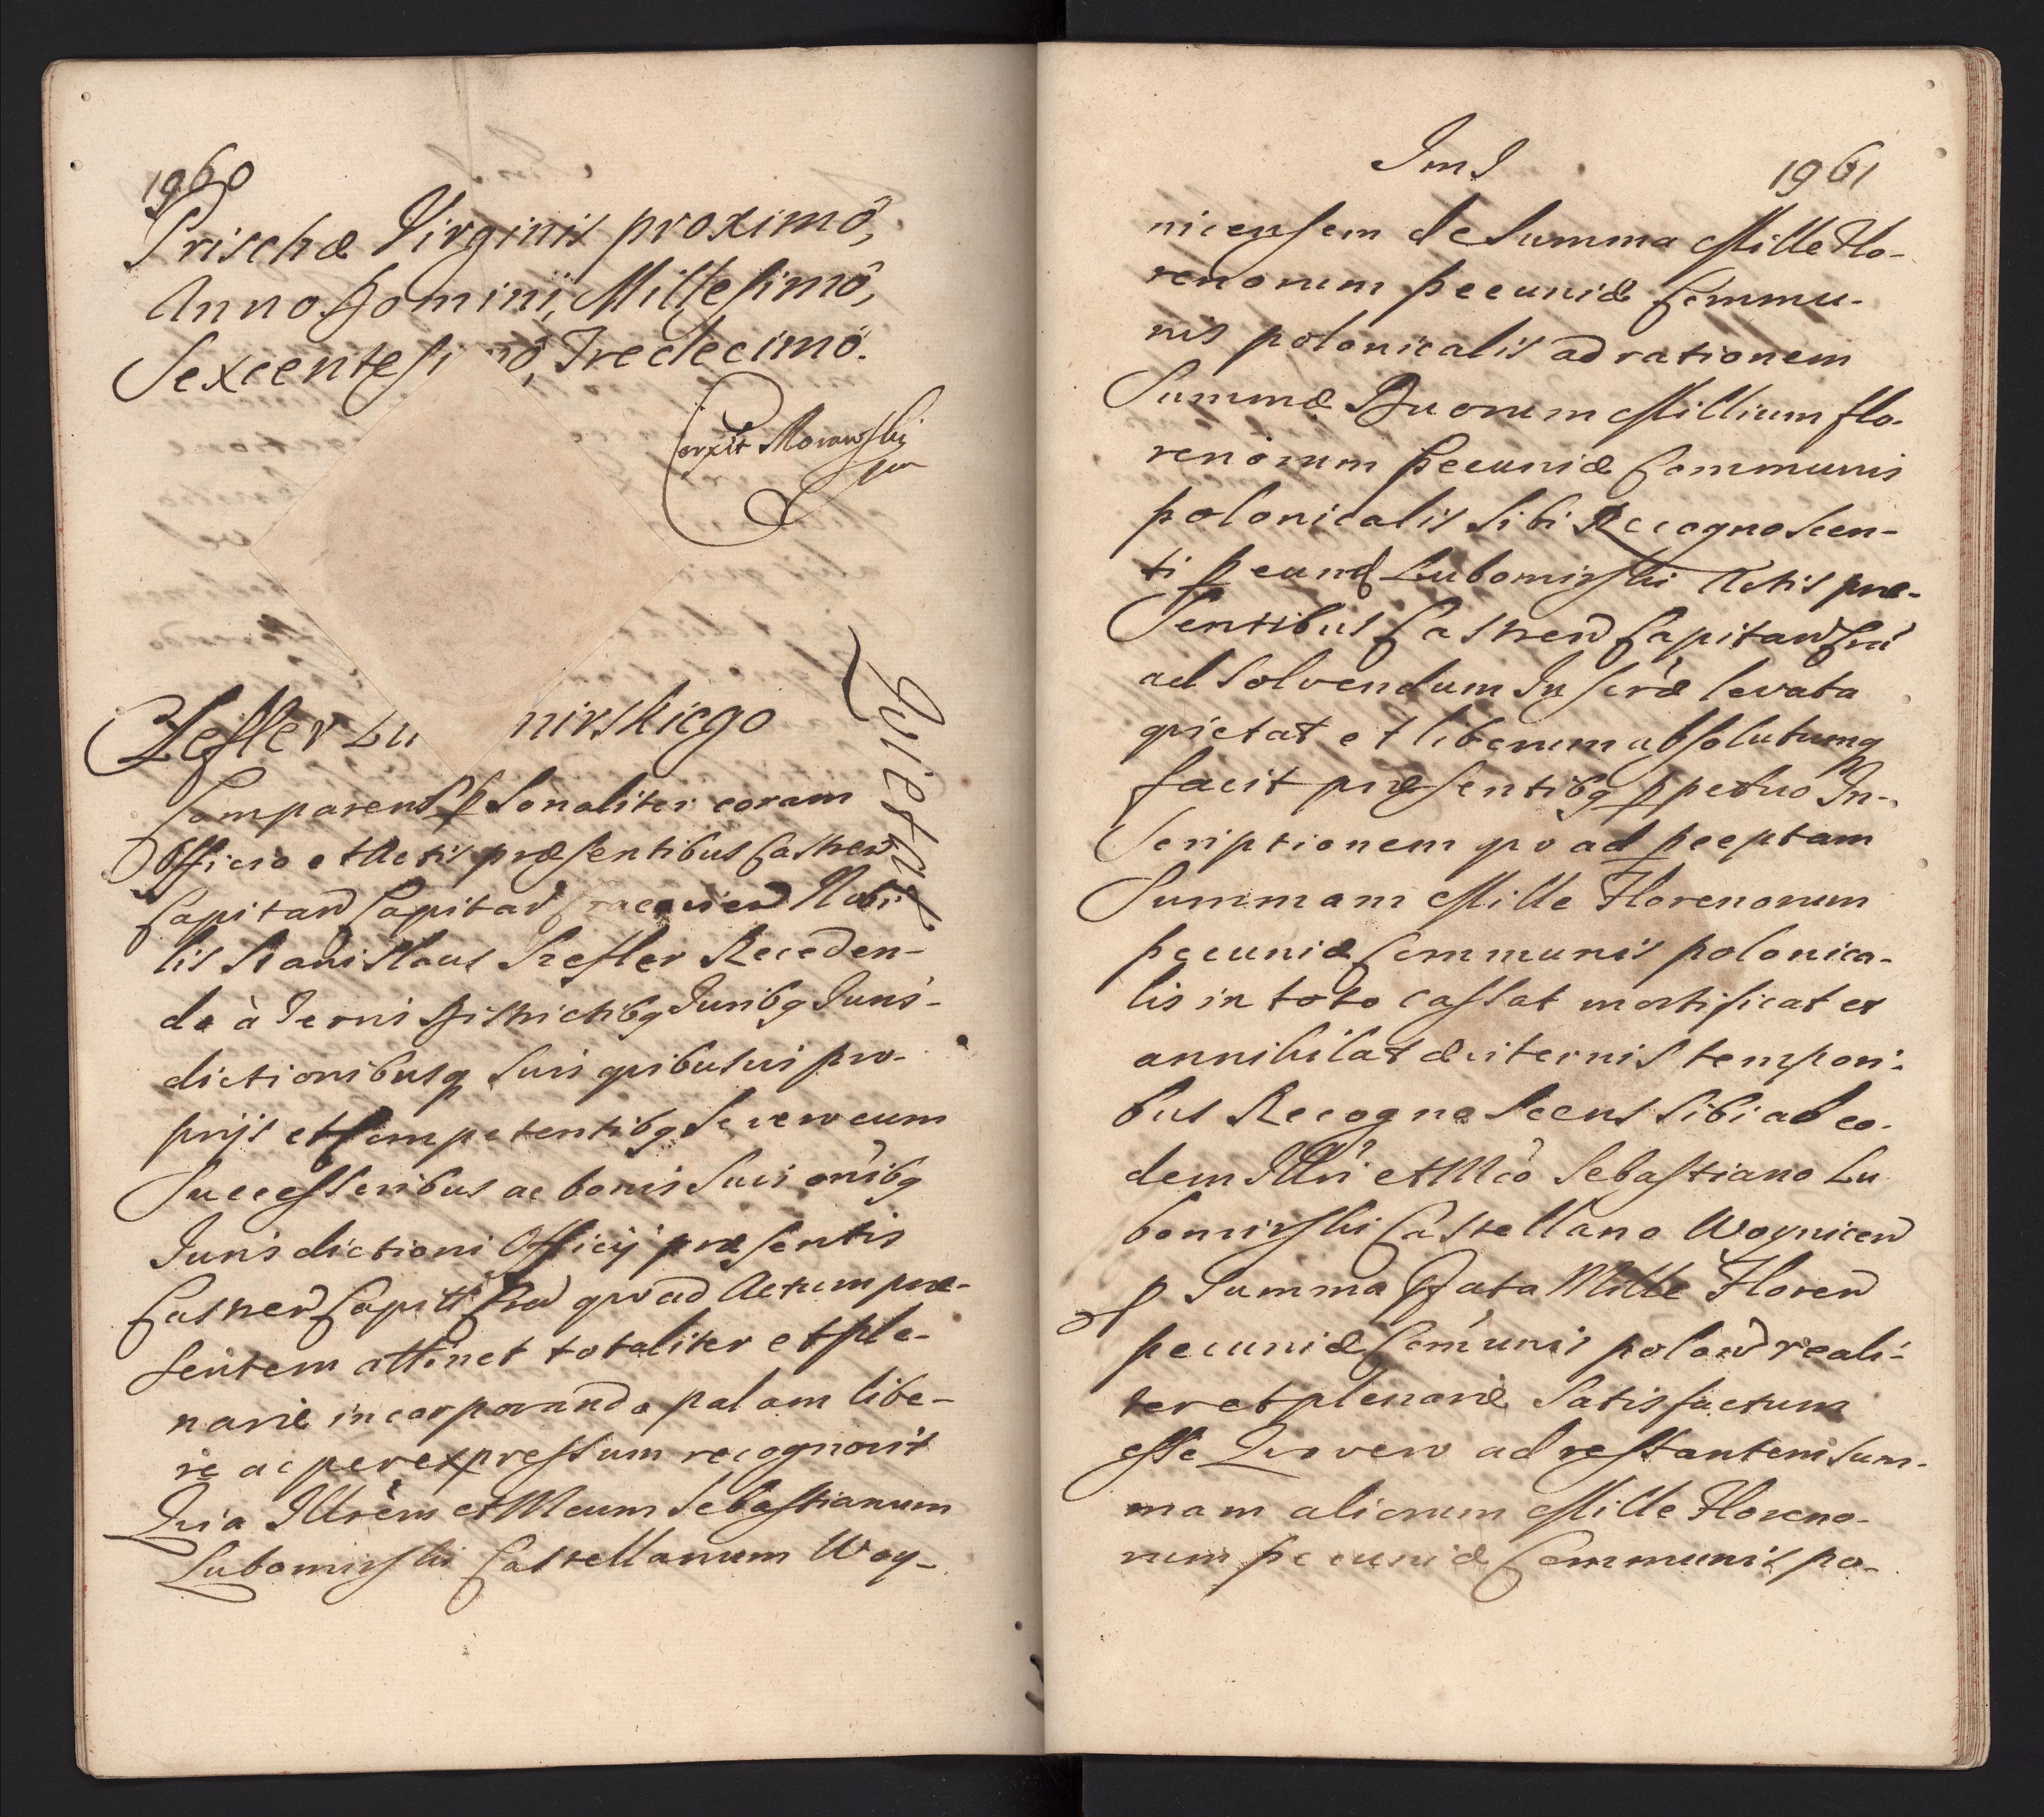 1960
Prischæ Virginis proximô,
Anno Domini, Millesimô,
Sexcentesi mô, Tredecimô.
Corrxit Morawski
Szefler Lu nirskiego
Quietat
Comparens psonaliter coram
Officio et Actis præsentibus Castren
Capitan Capitan Cracovien Nobi
lis Stanislaus Szefler Receden-
do à Terris Districtibq Juribq Juris-
dictionibusq suis quibusvis pro-
prijs et Competentibq Se vero cum
Successoribus ac bonis suis onibq
Jurisdictioni Officij præsentis
Castren Capitt Cra quoad Actum præ-
sentem attinet totaliter et ple-
narie incorporando palam libe-
re ac per expressum recognovit
Quia Illrem et Mcum Sebastianum
Lubomirski Castellanum Woy-
Jm J
1961
nicensem de Summa Mille Flo-
renorum pecuniæ Commu-
nis polonicalis ad rationem
Summæ Duorum Millium flo-
renorum pecuniæ Communis
polonicalis sibi Recognoscen-
ti p eund Lubomirski Actis præ-
sentibus Castren Capitan Cra
ad solvendum Inscræ levata
quietat et liberum absolutumq
facit præsentibq ppetuo In-
scriptionem quoad pceptam
Summam Mille Florenorum
pecuniæ Communis polonica-
lis in toto cassat mortificat et
annihilat æviternis tempori-
bus Recognoscens sibi ab eo-
dem Illri et Mco Sebastiano Lu
bomirski Castellano Woynicen
p Summa Data Mille Floren
pecuniæ Comunis polon reali-
ter et plenarie satisfactum
esse Quo vero ad restantem Sum-
mam aliorum Mille Floreno-
rum pecuniæ Communis po-